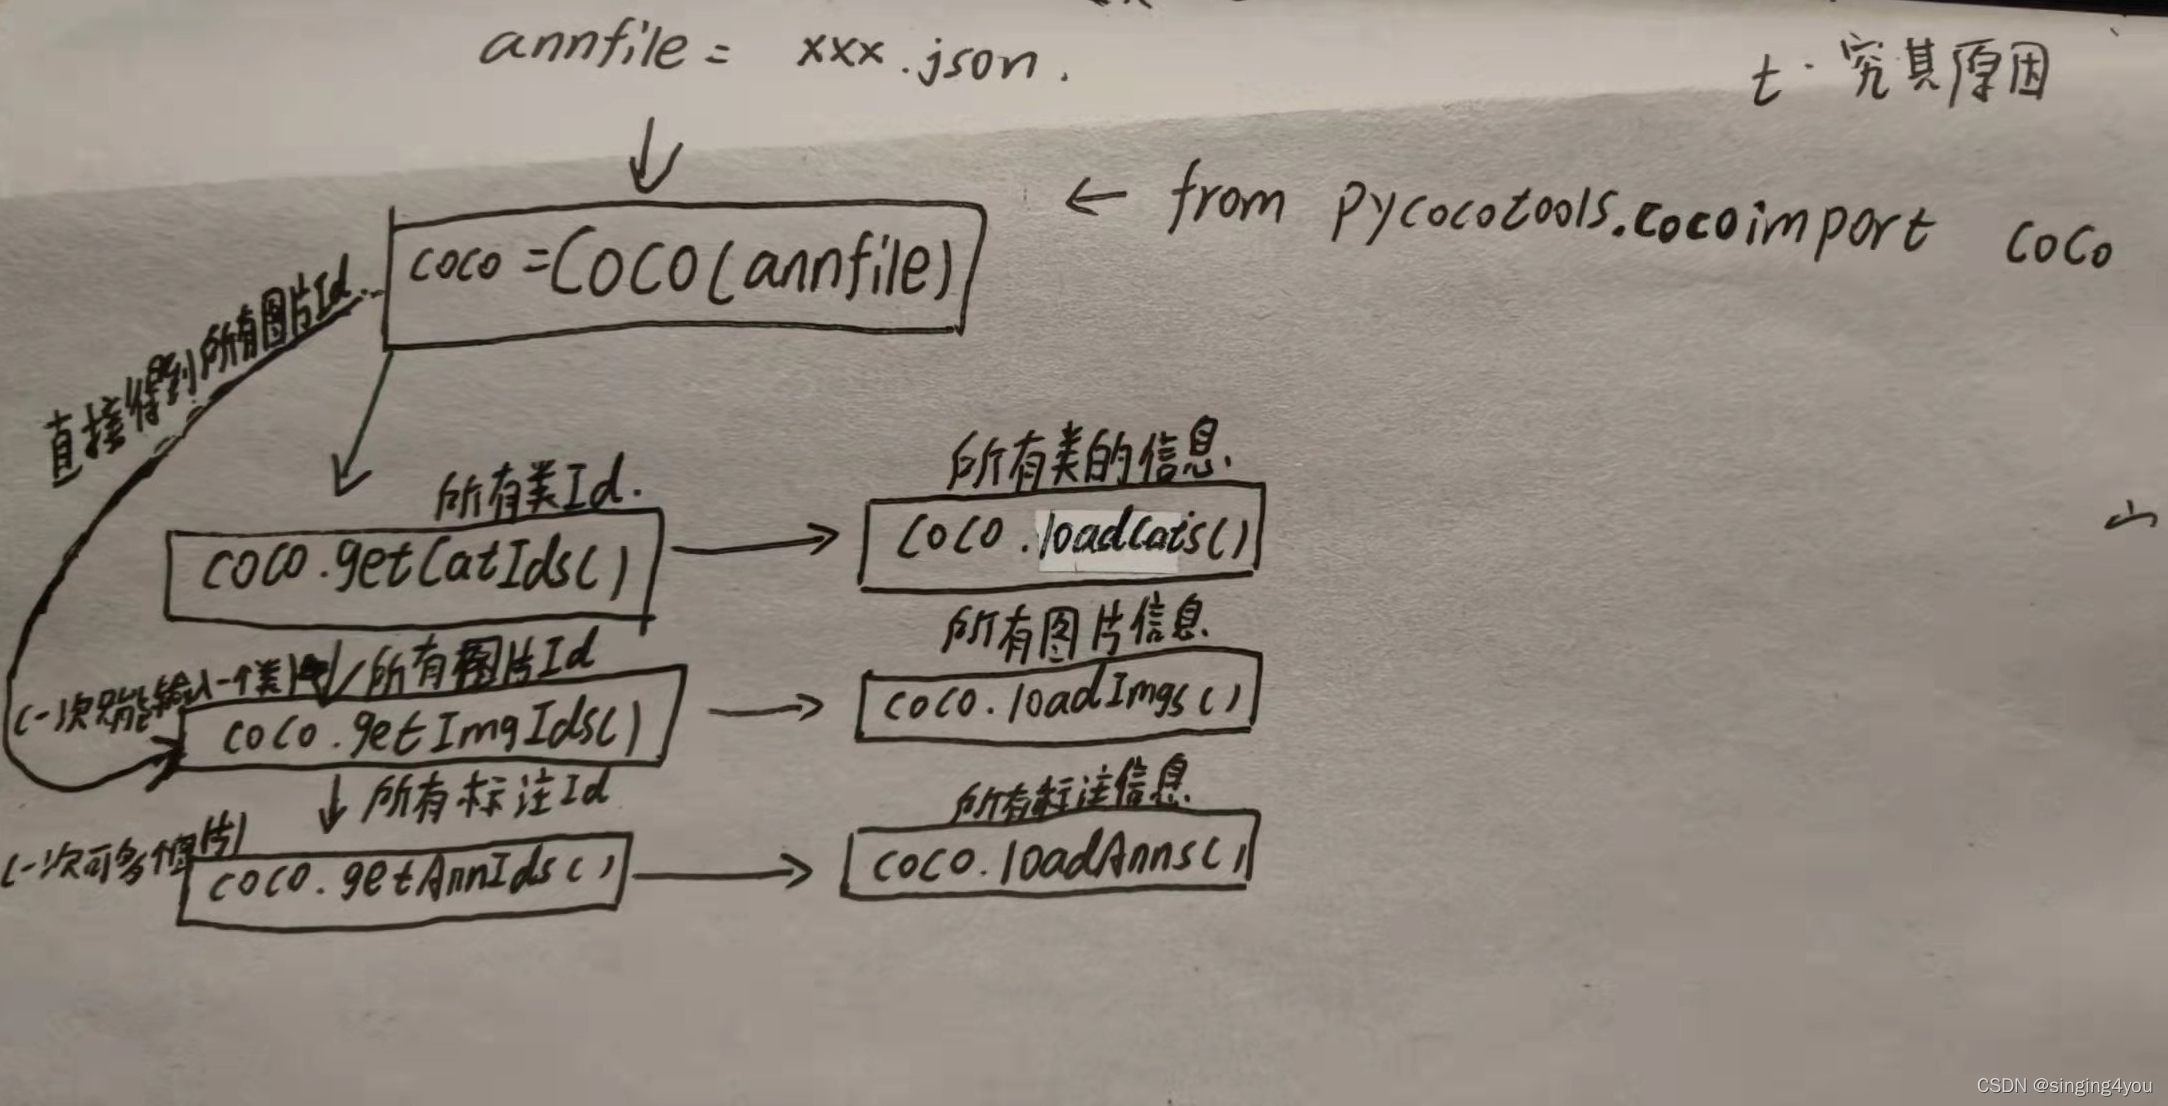 annfile = xxx.json.
t. 究其原因
← from pycocotools.cocoimport coco
coco =COCO(annfile)
直接得到所有图片Id.
所有类Id.
所有类的信息.
coco.getCatIds()
coco.loadCats()
所有图片Id
所有图片信息.
(一次只能输入一个类
coco.getImgIds()
coco.loadImgs()
所有标注Id
所有标注信息.
(一次可多个图片)
coco.getAnnIds()
coco.loadAnns()
CSDN @singing4you